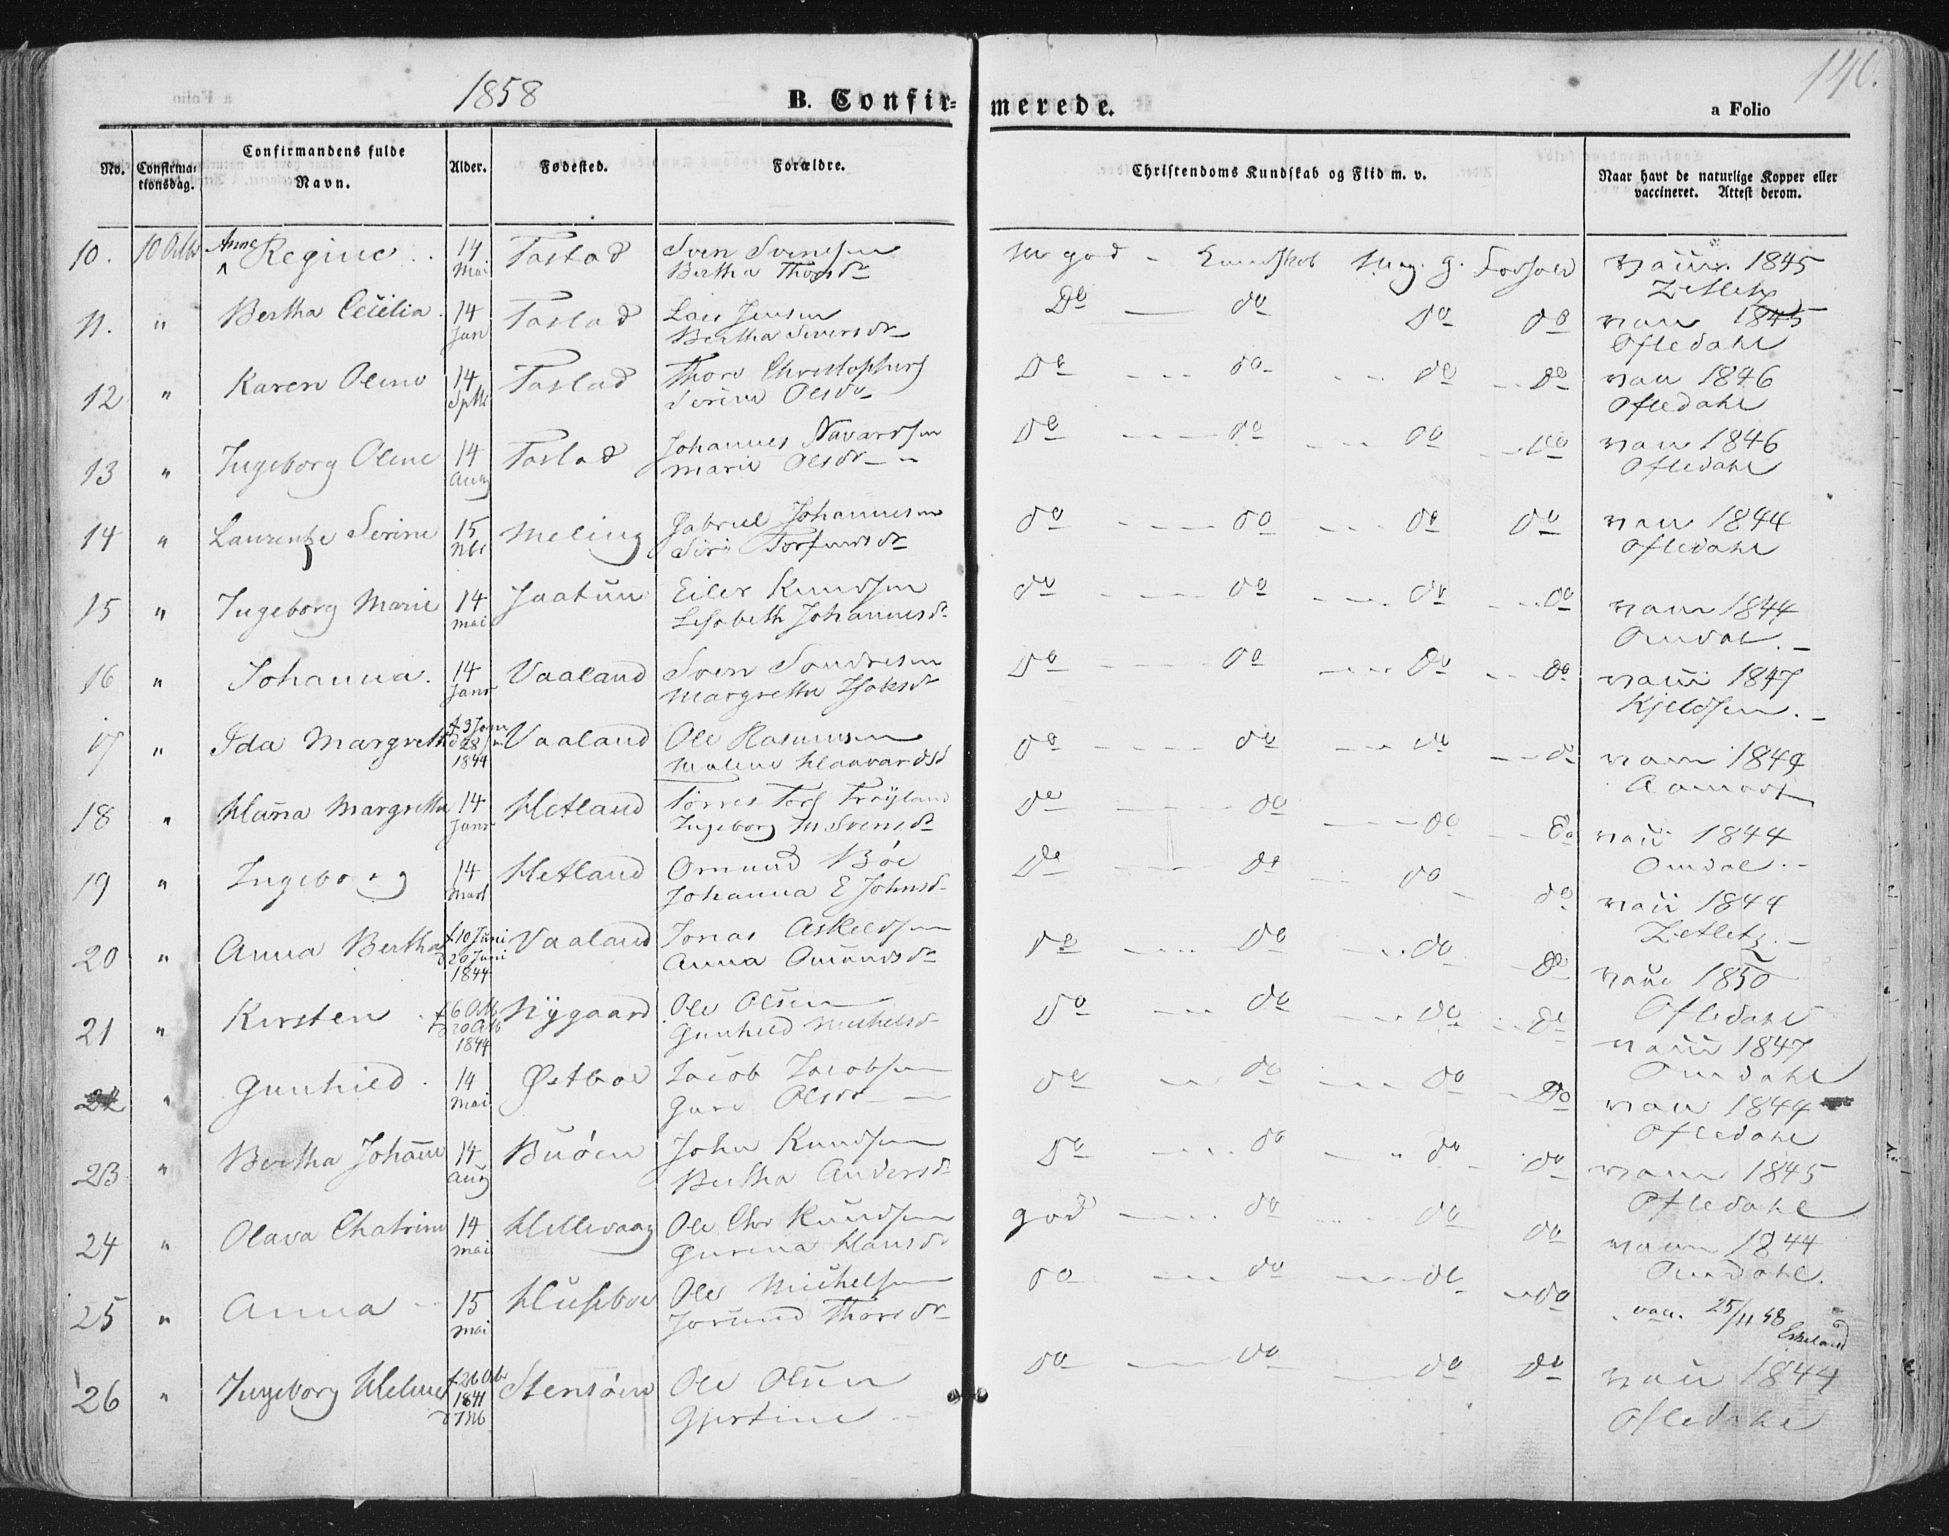 1858
B. Confir-
merede.
140.
a Folio
No.
Confirma-
tionsdag.
Confirmandens fulde
Navn.
Alder.
Fødested.
Forældre.
Christendoms Kundskab og Flid m. v.
Naar havt de naturlige Kopper eller
vaccineret. Attest derom.
10. 10 Octbr Anne Regine 14 Mai Tastad Sven Svensen
Bertha Thorsdr
god Kundskab Forhold 1845
Zetletz
11. " Bertha Cecilia 14 Jan Tastad Lars Jensen
Bertha Siversdr
Do do do do 1845
Ofledahl
12 " Karen Oline 14 Sptbr Tastad Thore Christophers
Serine Olsdr
Do do do do 1846
Ofledahl
13 " Ingeborg Oline 14 Aug Tastad Johannes Navardsen
Marie Olsdr
Do do do do 1846
Ofledahl
14 " Laurentze Serine 15 Nbr Meling Gabriel Johannesen
Siri Torfinnsdr
do do do do 1844
Ofledahl
15 " Ingeborg Marie 14 Mai Jaatun Eiler Knudsen
Lisabeth Johannesdr
do do do do 1844
Omdal
16 " Johanna 14 Janr Vaaland Sven Sondresen
Margrethe Isaksdr
Do do do do 1847
Kjeldsen
17 " Ida Margreth f 3 Janr d 28 1844 Vaaland Ole Rasmusen
Malene Haavardsd
do do do do 1844
18 " Hana Margrethe 14 Janr Hetland Torres Torf Frøyland
Ingeborg M Svensdr
Do do do do 1844
Omdal
19 " Ingeborg 14 Marts Hetland Omund Bøe
Johanna E Johnsd
Do do do do 1844
Zetletz
20 " Anna Bertha f 10 Juni d 20 Juni 1844 Vaaland Jonas Askeldsen
Anna Omundsdr
do do do do 1850
Ofledahl
21 " Kirsten f 6 Octb d 20 Octb 1844 Nÿgaard Ole Olsen
Gunhild Michelsd
Do do do do 1847
Omdahl
22 " Gunhild 14 Mai Østboe Jacob Jacobsen
Guri Olsdr
do do do Do 1844
Ofledahl
23 " Bertha Johane 14 Aug Buøen John Knudsen
Bertha Andersdr
Do do do do 1845
Ofledahl
24 " Olava Chatrine 14 Mai Hillevaag Ole Chr Knudsen
Gurina Hansdr
god do do do 1844
Omdahl
25 " Anna 15 Mai Husboe Ole Michelsen
Jorund Thoresdr
do do do do vac. 25/11 48
Eskeland
26 " Ingeborg Helene f 26 Obr 1841 Stensøen Ole Olsen
Gjertine
do do do do 1844
Ofledahl